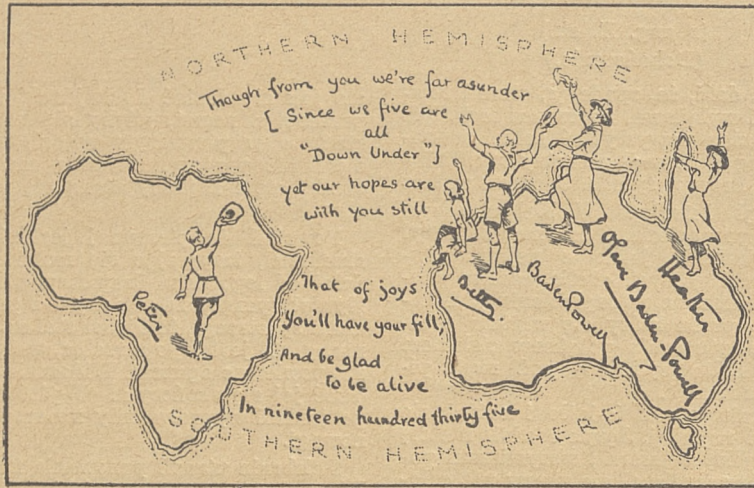 NORTHERN HEMISPHERE
Though from you we're far asunder
[ Since we five are
all
"Down Under"]
yet our hopes are
with you still
That of joys
You'll have your fill,
And be glad
to be alive
In nineteen hundred thirty five
SOUTHERN HEMISPHERE
Peter
Betty.
Baden Powell
Olave Baden-Powell
Heather